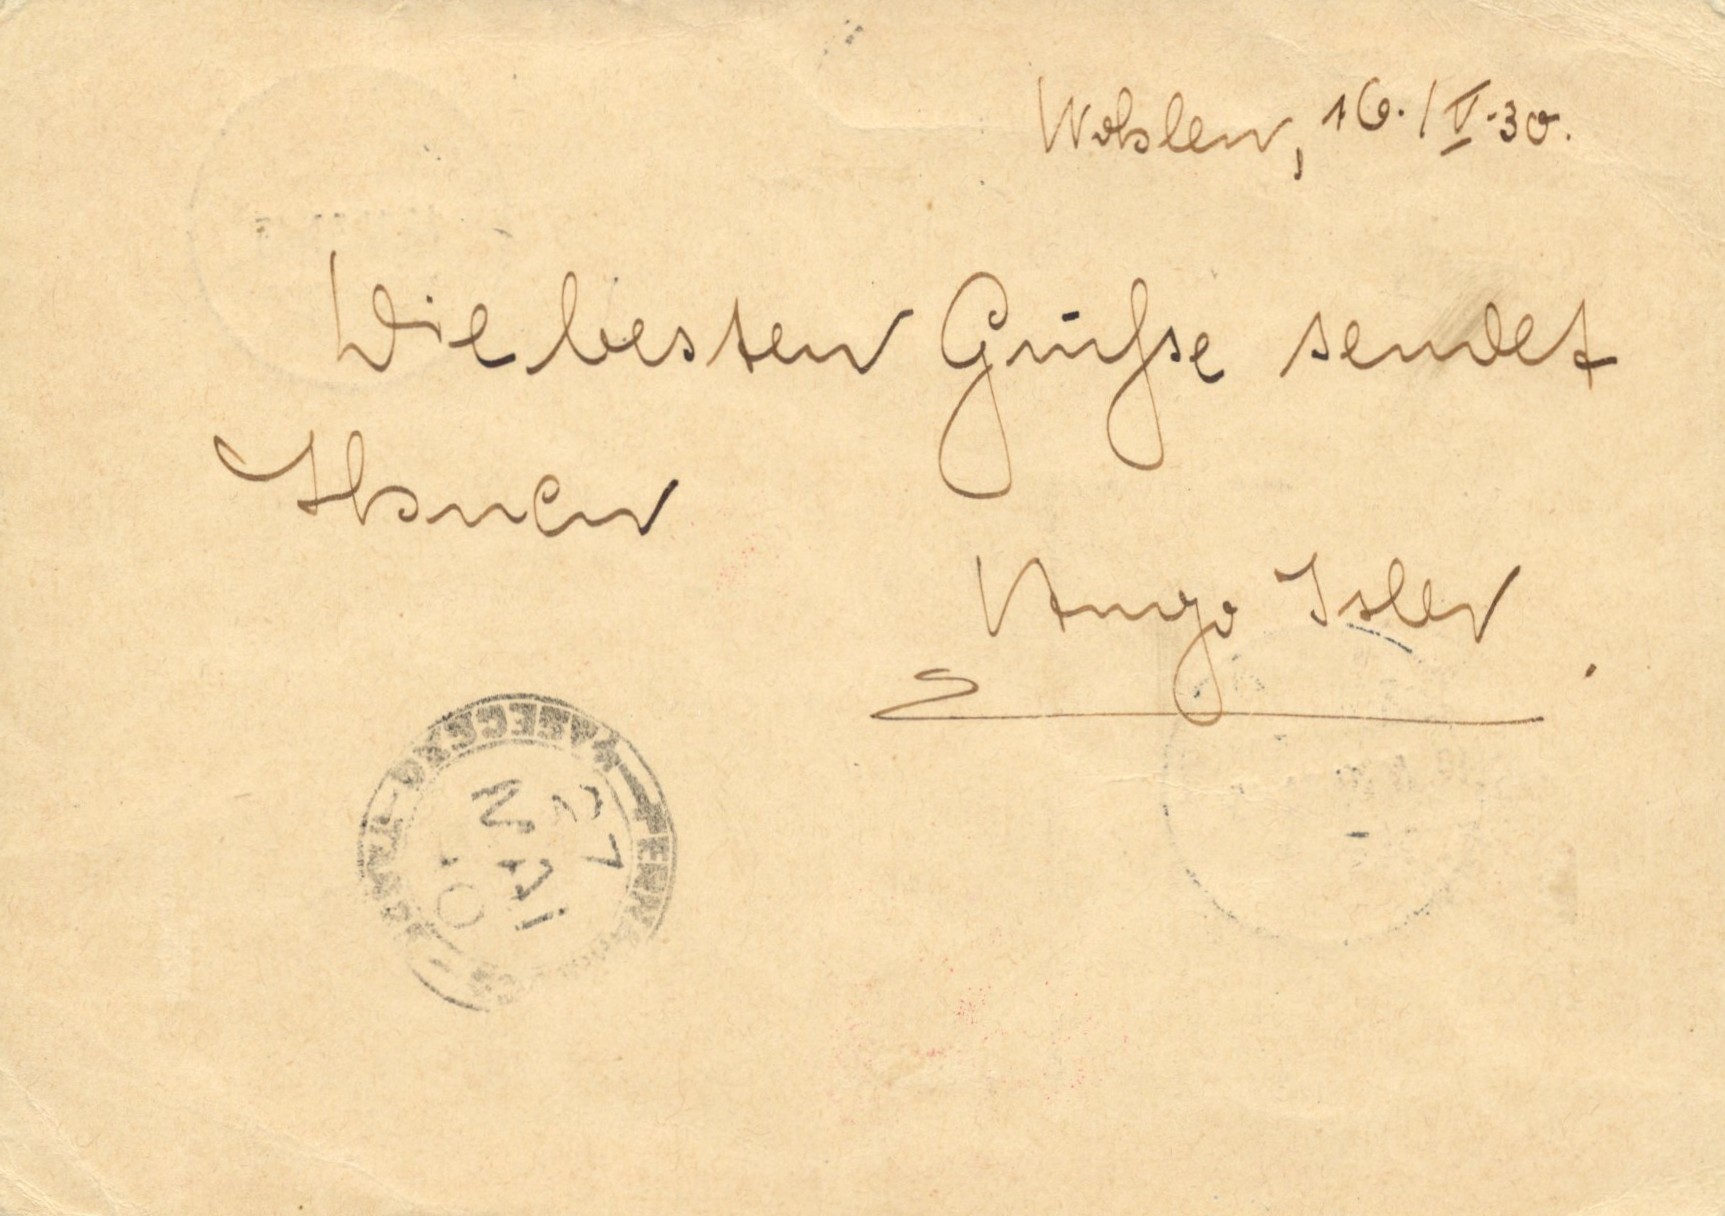 Wohlen, 16./V.30.
Die besten Grüsse sendet
Ihnen
Hugo Isler
27
MAI